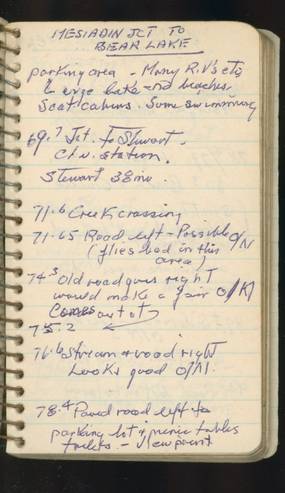 MESIADIN JCT TO
BEAR LAKE
parking area - Many R.V's etc
Large lake and beaches
Scat cabins. Some swimming
69.7 Jct. to Stewart.
Ch.v. station.
Stewart 38 mi.
71.6 Creek crossing
71.65 Road left - Possible O/N
(flies bad in this
area)
74.3 Old road goes right
would make a fair O/N
Comes out at
75.2
76.6 Stream & road right
Looks good O/N.
78.4 Paved road left to
parking lot & picnic tables
toilets - view point